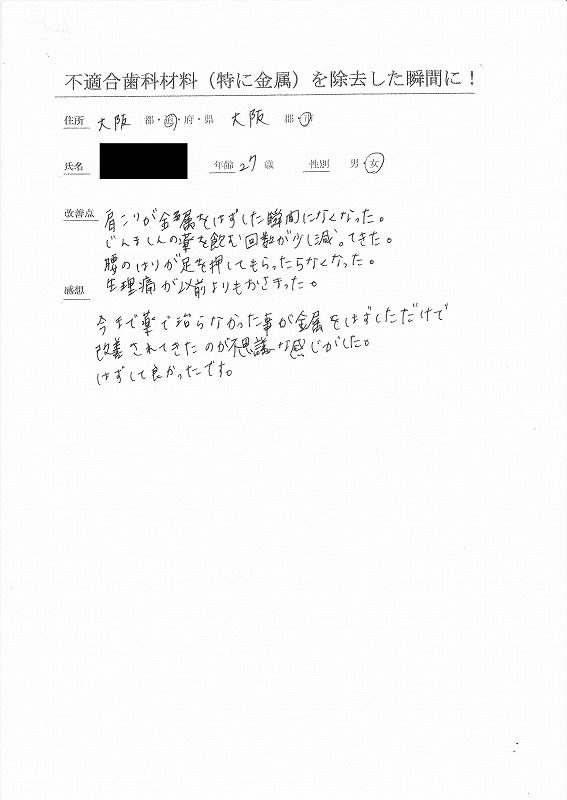 不適合歯科材料（特に金属）を除去した瞬間に！
住所 大阪 都・道・府・県 大阪 郡・市
氏名 年齢 27 歳 性別 男・女
改善点 肩こりが金属をはずした瞬間になくなった。
じんましんの薬を飲む回数が少し減ってきた。
腰のはりが足を押してもらったらなくなった。
生理痛が以前よりもおさまった。
感想
今まで薬で治らなかった事が金属をはずしただけで
改善されてきたのが不思議な感じがした。
はずして良かったです。